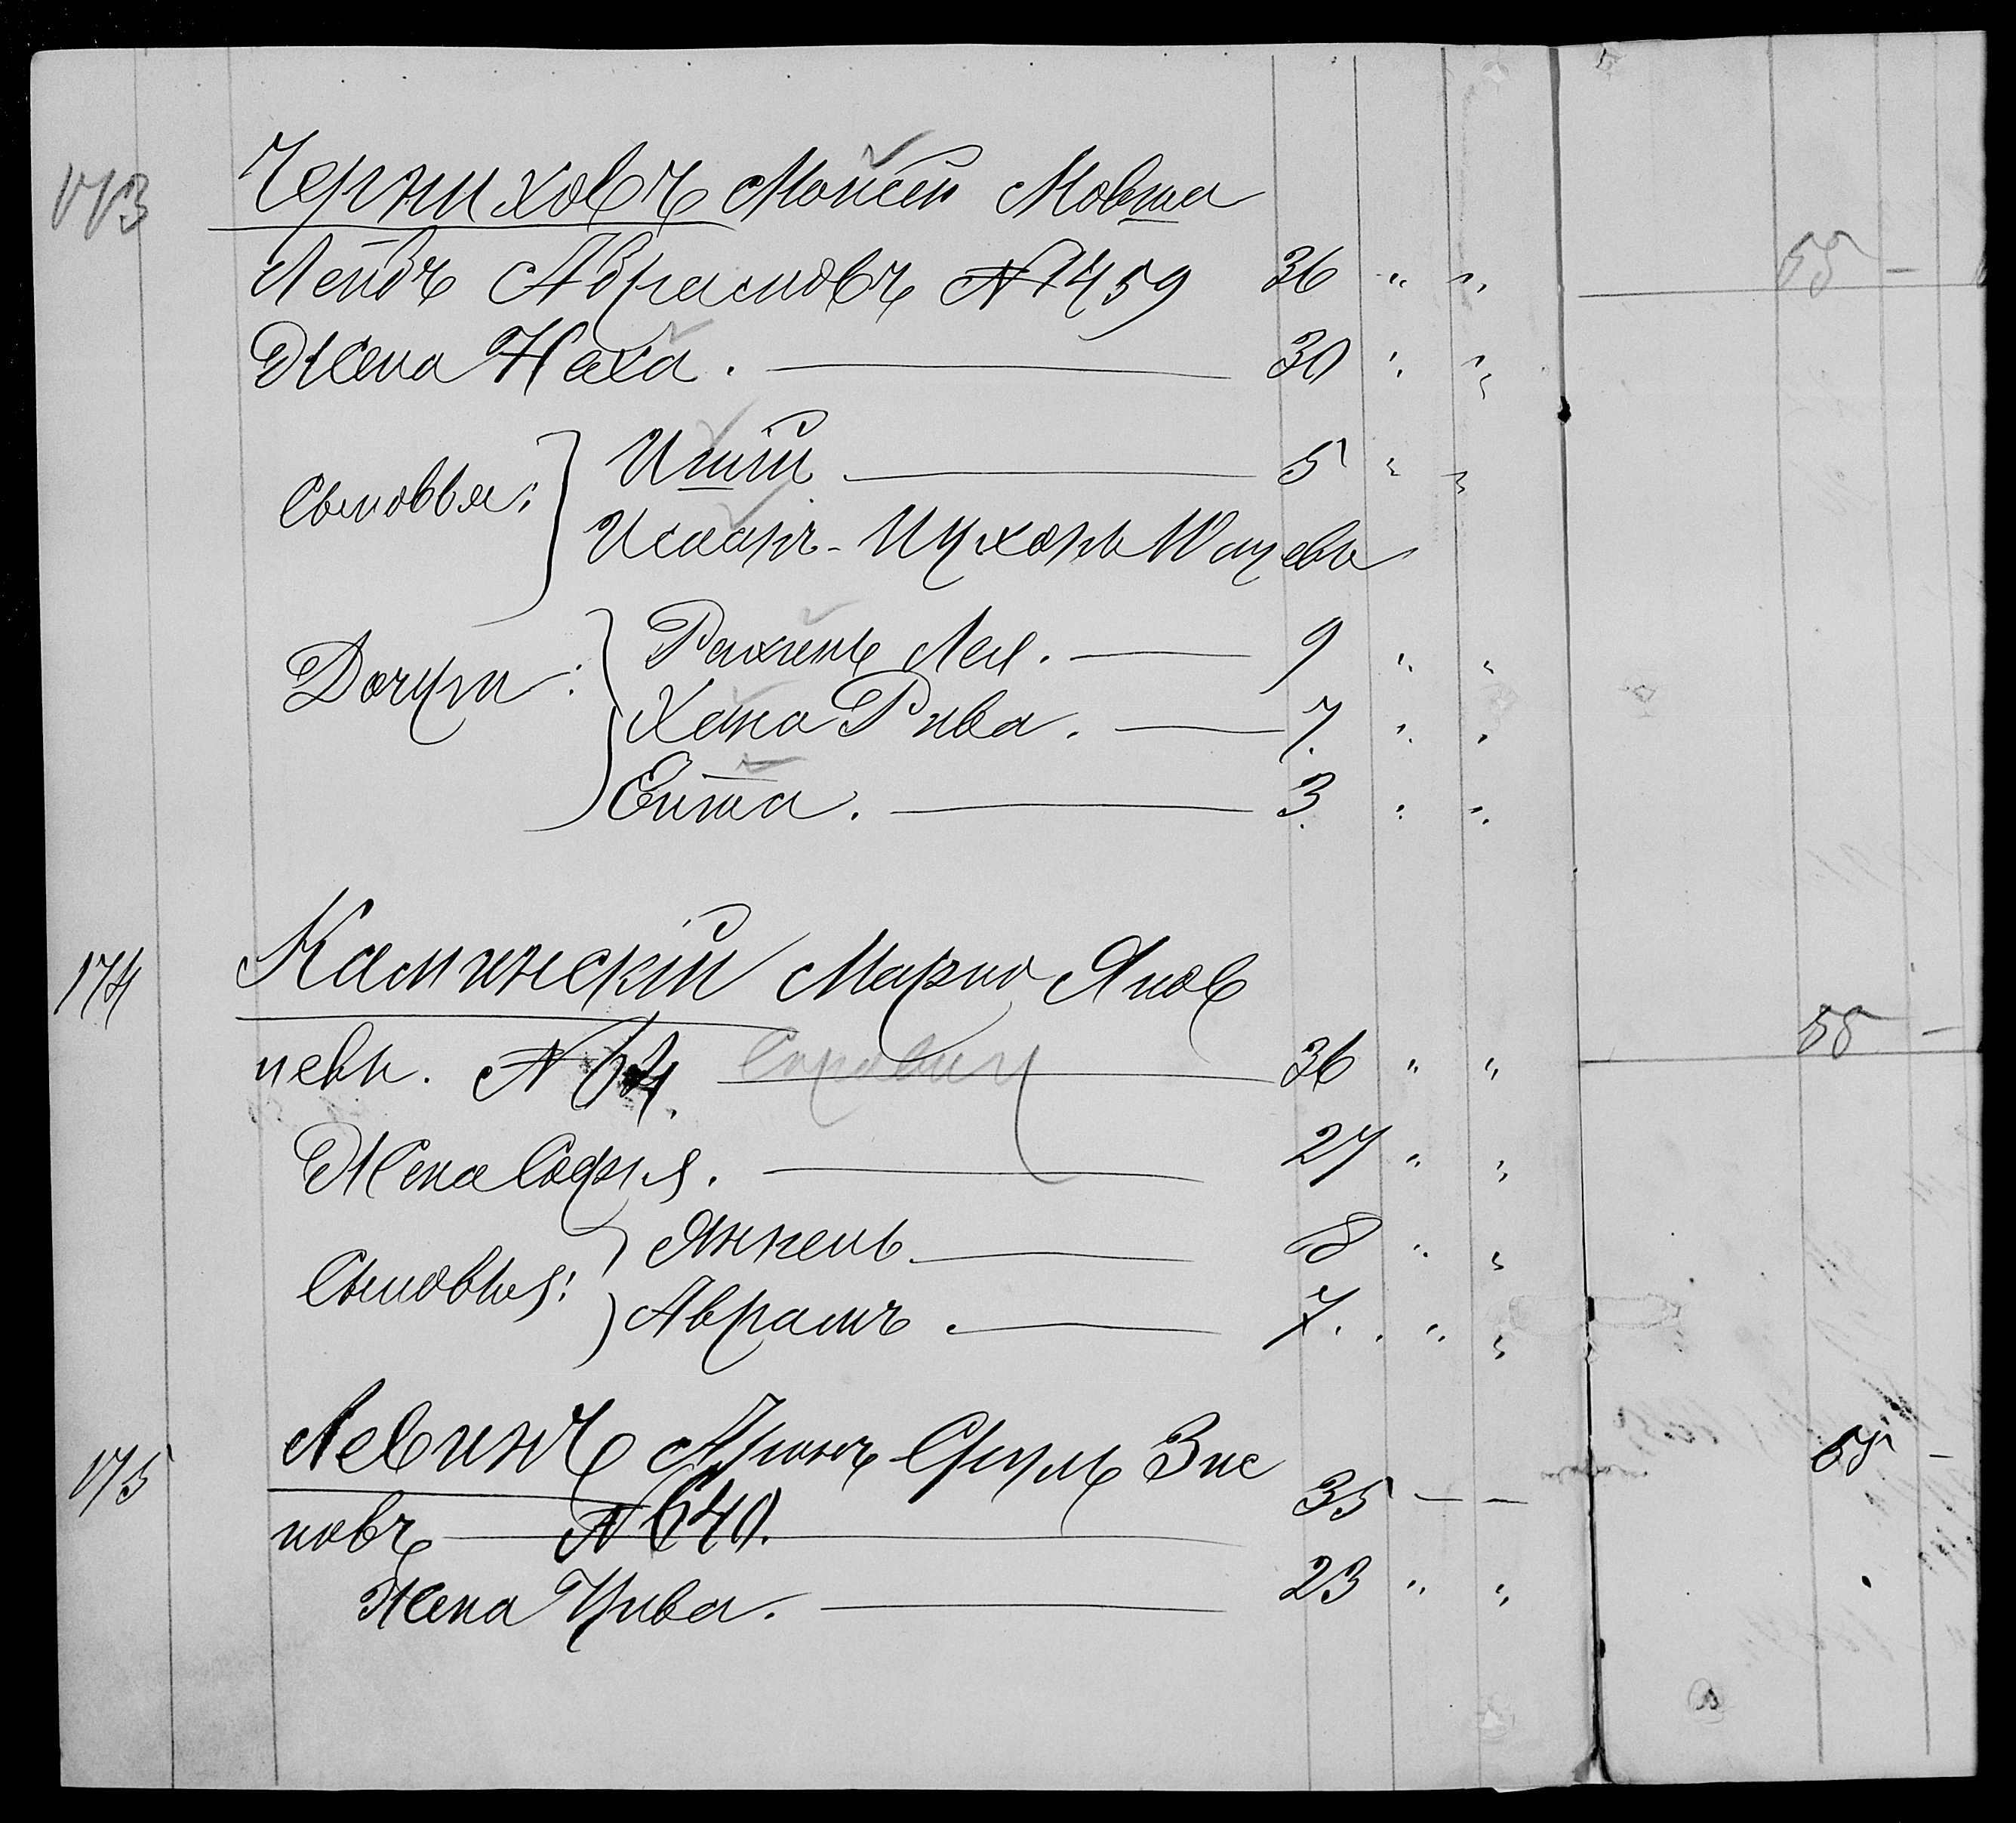 173 Черниховъ Мойсей Мовша
Лейбъ Абрамовъ № 1459 36 " " 55 —
Жена Хая. — 30 " "
Сыновья: Ишій — 5 " "
Исаакъ-Ицхокъ
Дочери: Рахиль Лея. — 9 " "
Хана Рива. — 7. " "
Ейта. — 3. " "
174 Каминскій Марко Янке
левъ. № 64. — 36 " " 55 —
Жена Софья. — 27 " "
Сыновья: Янкель — 8 " "
Аврамъ. — 7. " "
175 Левинъ Аронъ-Сруль Зис
новъ — № 640. — 35 — — 55 —
Жена Цива. — 23 " "